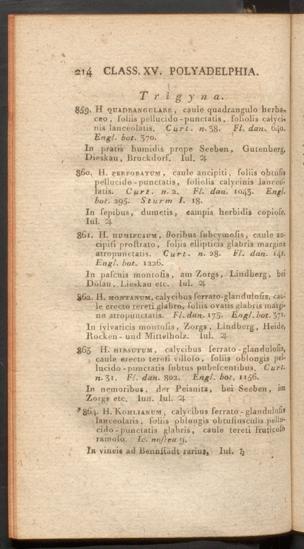 214 CLASS. XV. POLYADELPHIA.
Trigyna.
859. H QUADRANGULARE, caule quadrangulo herba-
ceo, foliis pellucido-punctatis, foliolis calyci-
nis lanceolatis. Curt. n. 38. Fl. dan. 640.
Engl. bot. 370.
In pratis humidis prope Seeben, Gutenberg,
Dieskau, Bruckdorf. Iul. ♃
860. H. PERFORATUM, caule ancipiti, foliis obtusis
pellucido-punctatis, foliolis calycinis lanceo-
latis. Curt. n. 2. Fl. dan. 1043. Engl.
bot. 295. Sturm I. 18.
In sepibus, dumetis, campis herbidis copiose.
Iul. ♃
861. H. HUMIFUSUM, floribus subcymosis, caule an-
cipiti prostrato, foliis ellipticis glabris margine
atropunctatis. Curt. n. 28. Fl. dan. 141.
Engl. bot. 1226.
In pascuis montosis, am Zorgs, Lindberg, bei
Dölau, Lieskau etc. Iul. ♃
862. H. MONTANUM, calycibus serrato-glandulosis, cau-
le erecto tereti glabro, foliis ovatis glabris margi-
ne atropunctatis. Fl. dan. 173. Engl. bot. 371.
In sylvaticis montosis, Zorgs, Lindberg, Heide,
Rocken- und Mittelholz. Iul. ♃
863 H. HIRSUTUM, calycibus serrato-glandulosis,
caule erecto tereti villoso, foliis oblongis pel-
lucido-punctatis subtus pubescentibus. Curt.
n. 31. Fl. dan. 802. Engl. bot. 1156.
In nemoribus, der Peisnitz, bei Seeben, im
Zorgs etc. Iun. Iul. ♃
*864. H. KOHLIANUM, calycibus serrato-glandulosis
lanceolatis, foliis oblongis obtusiusculis pellu-
cido-punctatis glabris, caule tereti fruticoso
ramoso. Ic. nostra 9.
In vineis ad Bennstädt rarius, Iul. ♄